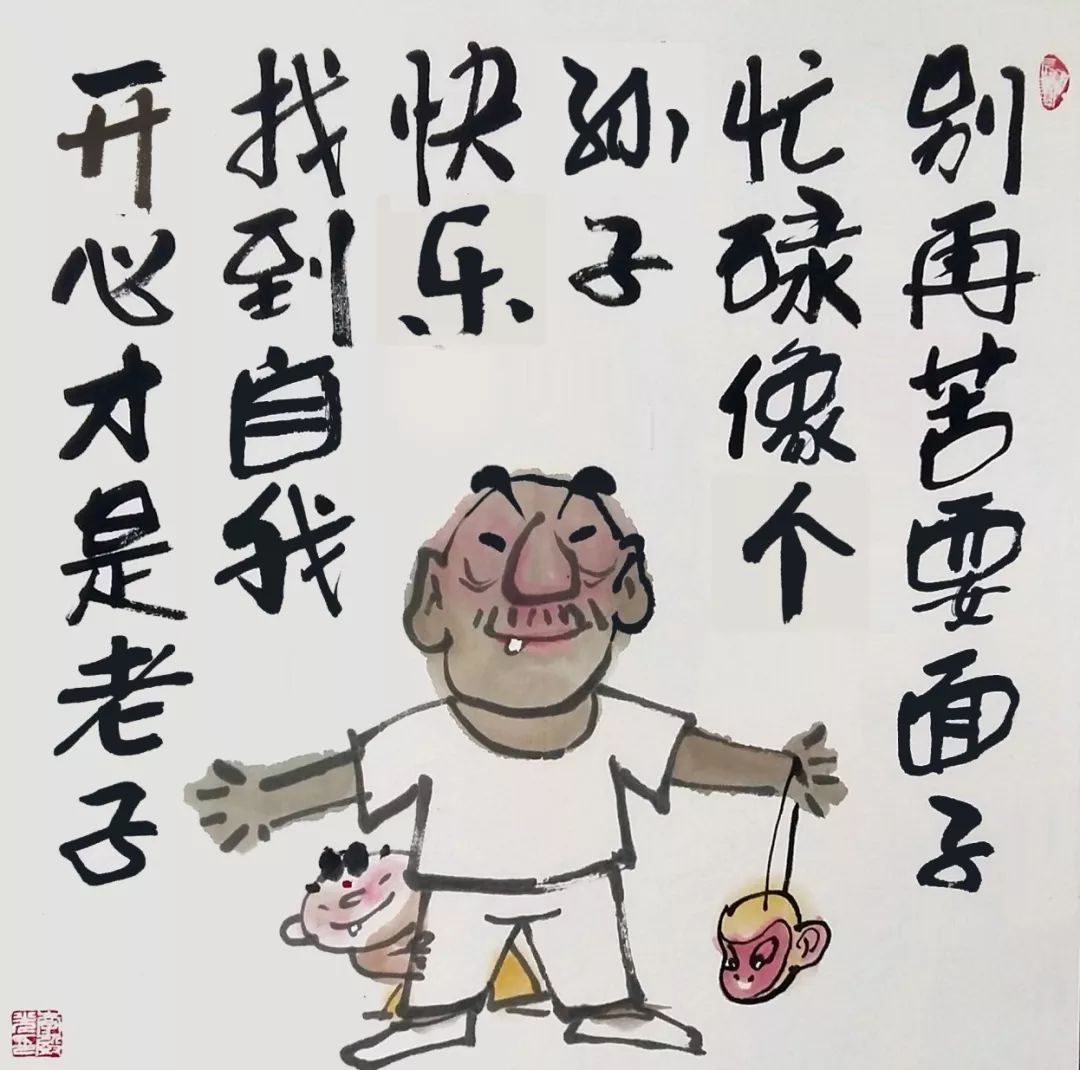 别再苦要面子
忙碌像个
孙子
快乐
找到自我
开心才是老子